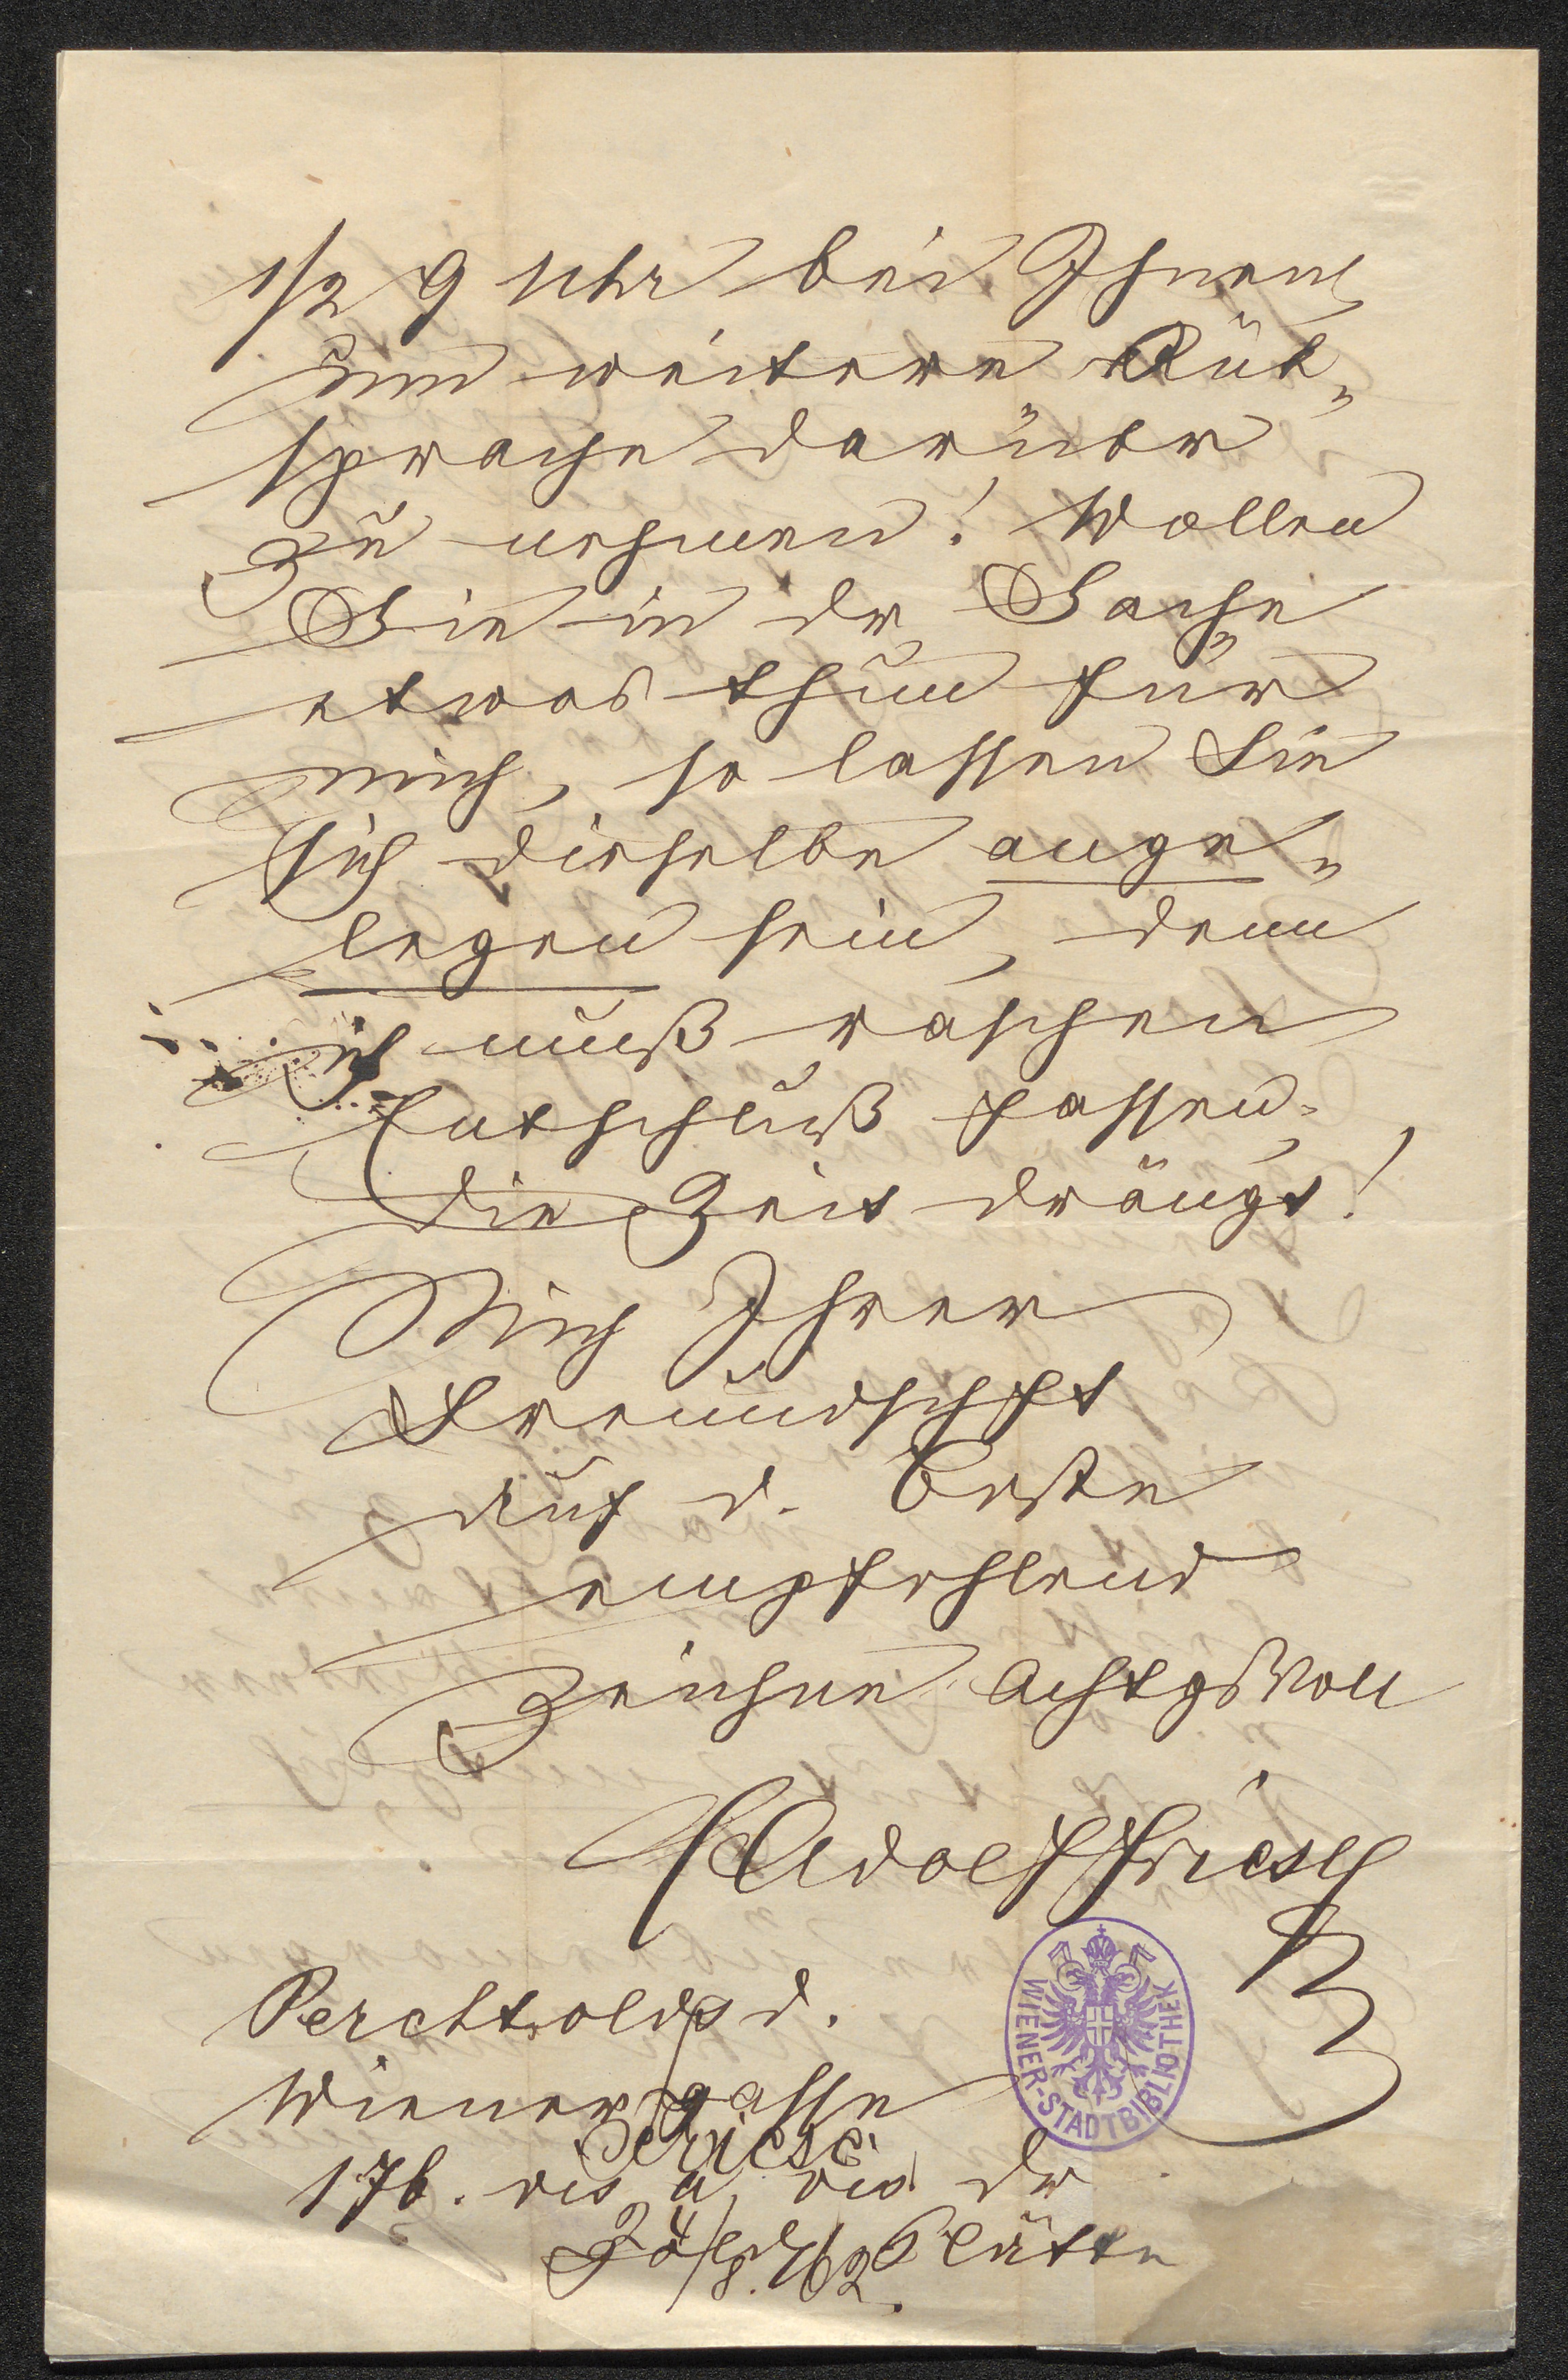 1/2 9 Uhr bei Ihnen
um weitere Rük„
sprache darüber
zu nehmen! Wollen
Sie in der Sache
etwas thun für
mich, so lassen Sie
sich dieselbe ange„
legen sein, denn
ich muß raschen
Entschluß fassen,
die Zeit drängt!
Mich Ihrer
Freundschft
auf d. Beste
empfehlend
Zeichne Achtgsvoll
Adolf Friese
Perchtoldsd.
Wienergasse
Friese
176. vis a vis der
24/8. 62.
WIENER-STADTBIBLIOTHEK